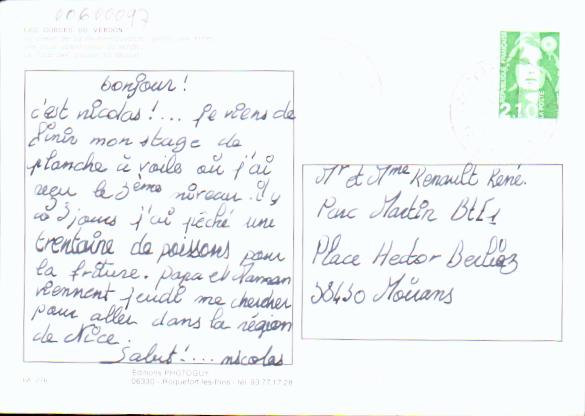 00600097
LES GORGES DU VERDON
bonjour !
c'est nicolas !... je viens de
finir mon stage de
planche à voile où j'ai
reçu le 3ème niveau. il y
a 3 jours j'ai pêché une
trentaine de poissons pour
la friture. papa et maman
viennent jeudi me chercher
pour aller dans la région
de Nice.
Salut !... nicolas
REPUBLIQUE FRANÇAISE
2,10
LA POSTE
Mr et Mme Renault René.
Parc Martin Bt E1
Place Hector Berlioz
38430 Moirans
Editions PHOTOGUY
06330 - Roquefort-les-Pins - tél. 93.77.17.28